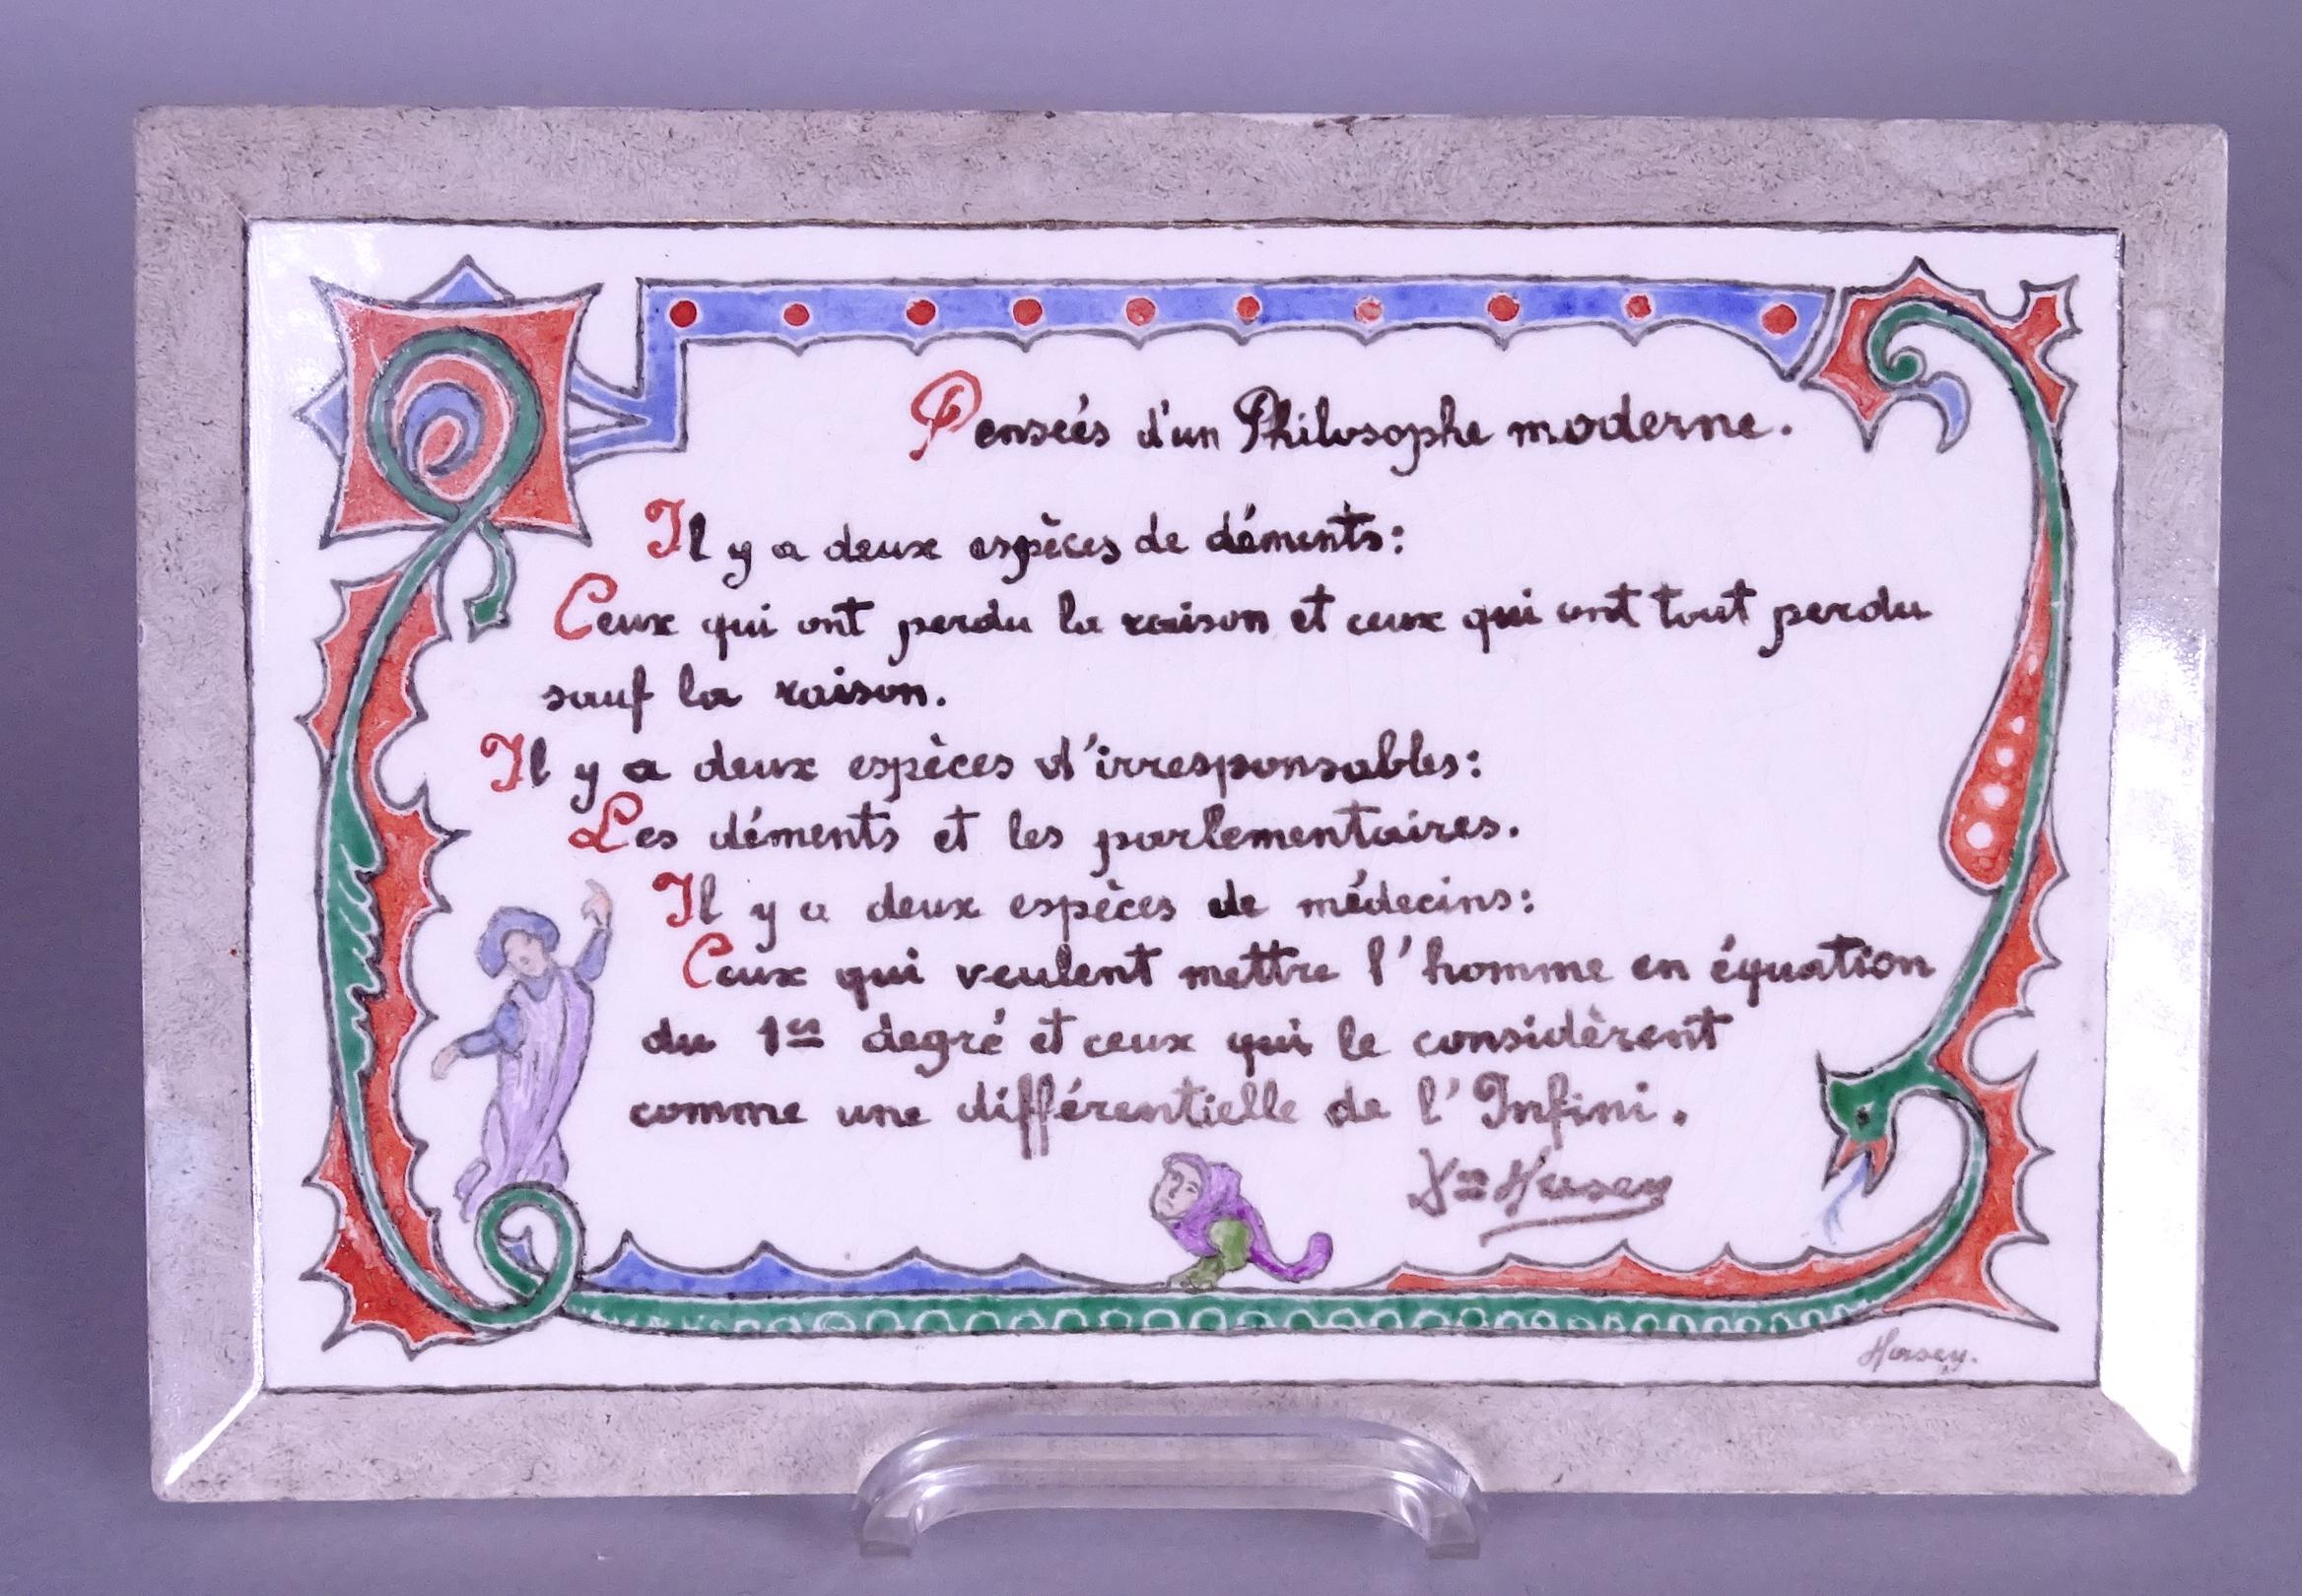 Penseés d'un Philosophe moderne.
Il y a deux espèces de déments:
Ceux qui ont perdu la raison et ceux qui ont tout perdu
sauf la raison.
Il y a deux espèces d'irresponsables:
Les déments et les parlementaires.
Il y a deux espèces de médecins:
Ceux qui veulent mettre l'homme en équation
du 1er degré et ceux qui le considèrent
comme une différentielle de l'Infini.